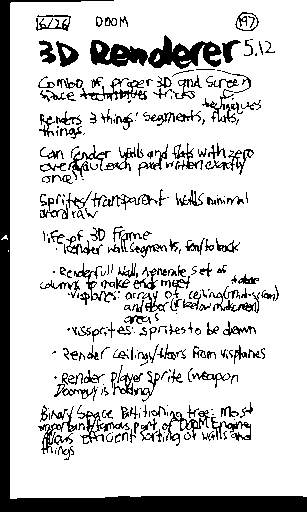 6/26 DOOM 197
3D Renderer 5.12
Combo of proper 3D and screen
space techniques tricks
techniques
Renders 3 things: segments, flats,
things.
Can render walls and flats with zero
overdraw (each pixel written exactly
once)!
Sprites/transparent walls minimal
overdraw
Life of 3D frame
· Render wall segments, front to back
· Render full wall, generate set of
columns to make ends meet
· Visplanes: array of ceiling
and floor (below midscreen)
areas
· vissprites: sprites to be drawn
· Render ceilings/floors from visplanes
· Render player sprite (weapon
Doomguy is holding)
Binary Space Partitioning tree: most
important/famous part of DOOM Engine
Allows efficient sorting of walls and
things